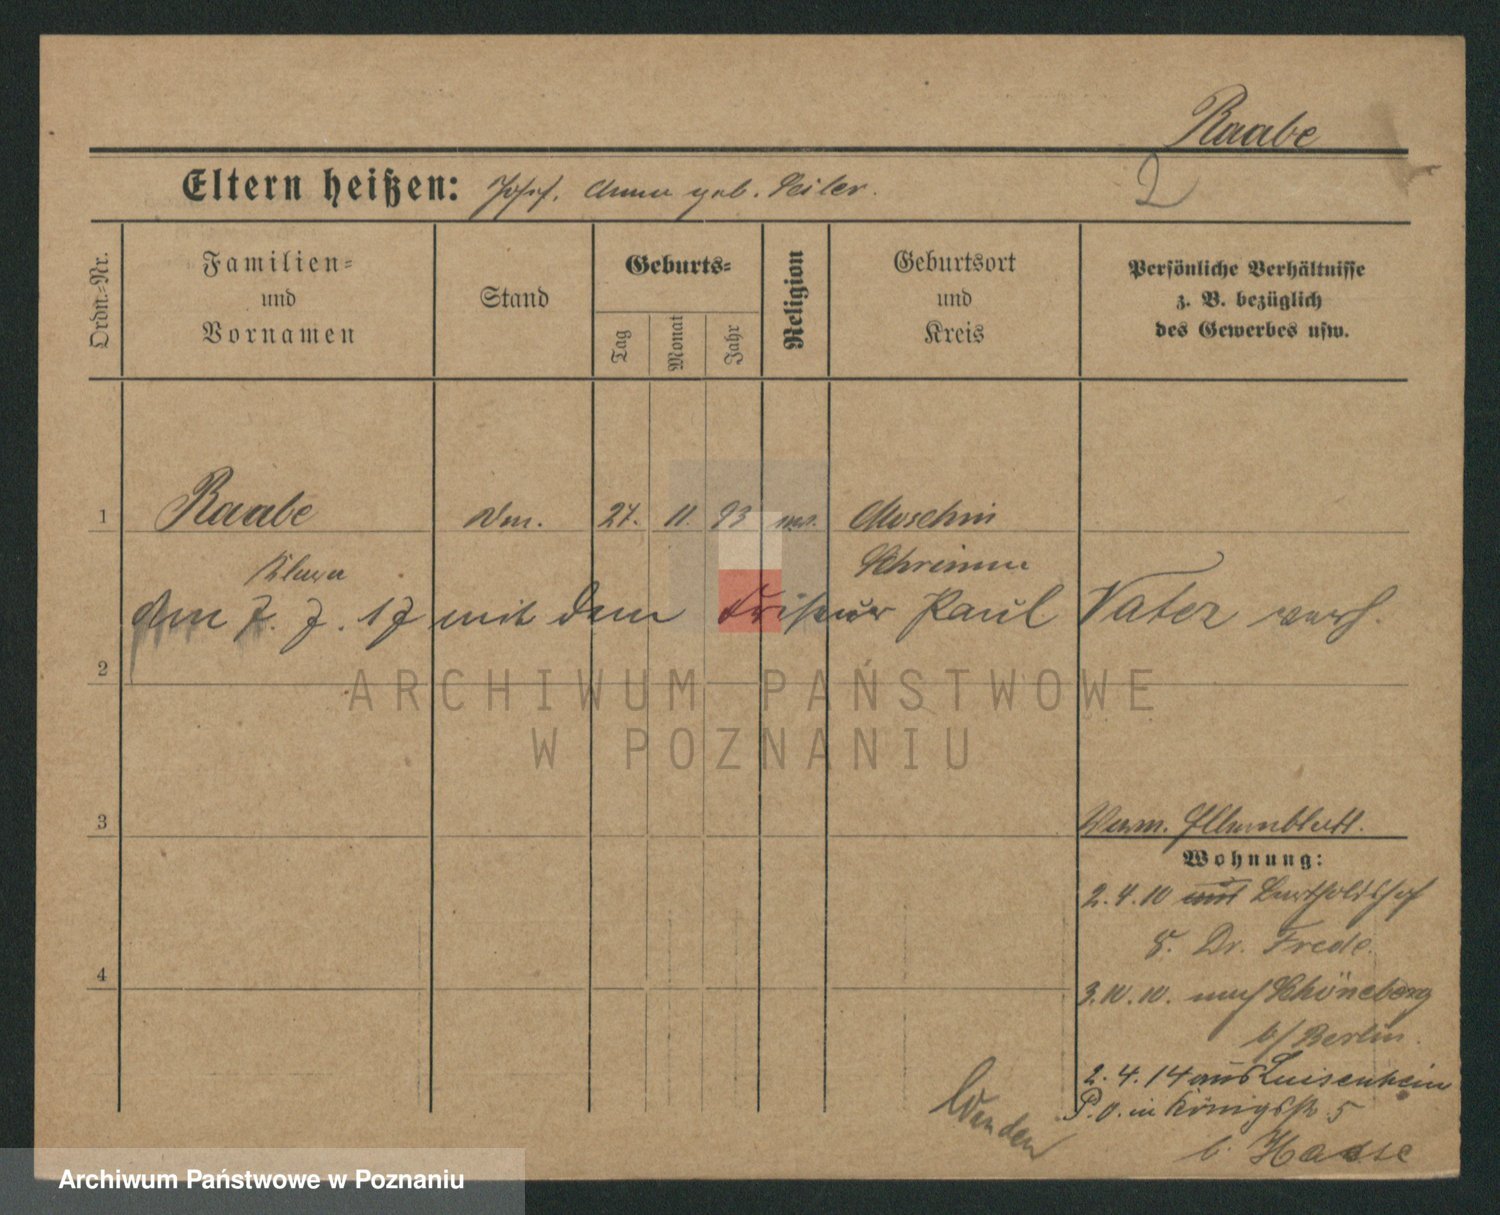 Raabe
2
Eltern heißen: Josef. Anna geb. Seiler.
Ordn.-Nr.
Familien-
und
Vornamen
Stand
Geburts-
Tag
Monat
Jahr
Religion
Geburtsort
und
Kreis
Persönliche Verhältnisse
z. B. bezüglich
des Gewerbes usw.
1 Raabe 27. 11. 93 Moschin
Klara Schrimm
den 7. 7. 17 mit dem Friseur Paul Vater verh.
2
3
Wohnung:
2.4.10 Bertholdshof
8. Dr. Frede.
4
3.10.10. nach Schöneberg
b/Berlin.
2.4.14 aus Luisenhein
P.O. in Königstr 5
b. Haase
Wenden
ARCHIWUM PAŃSTWOWE
W POZNANIU
Archiwum Państwowe w Poznaniu